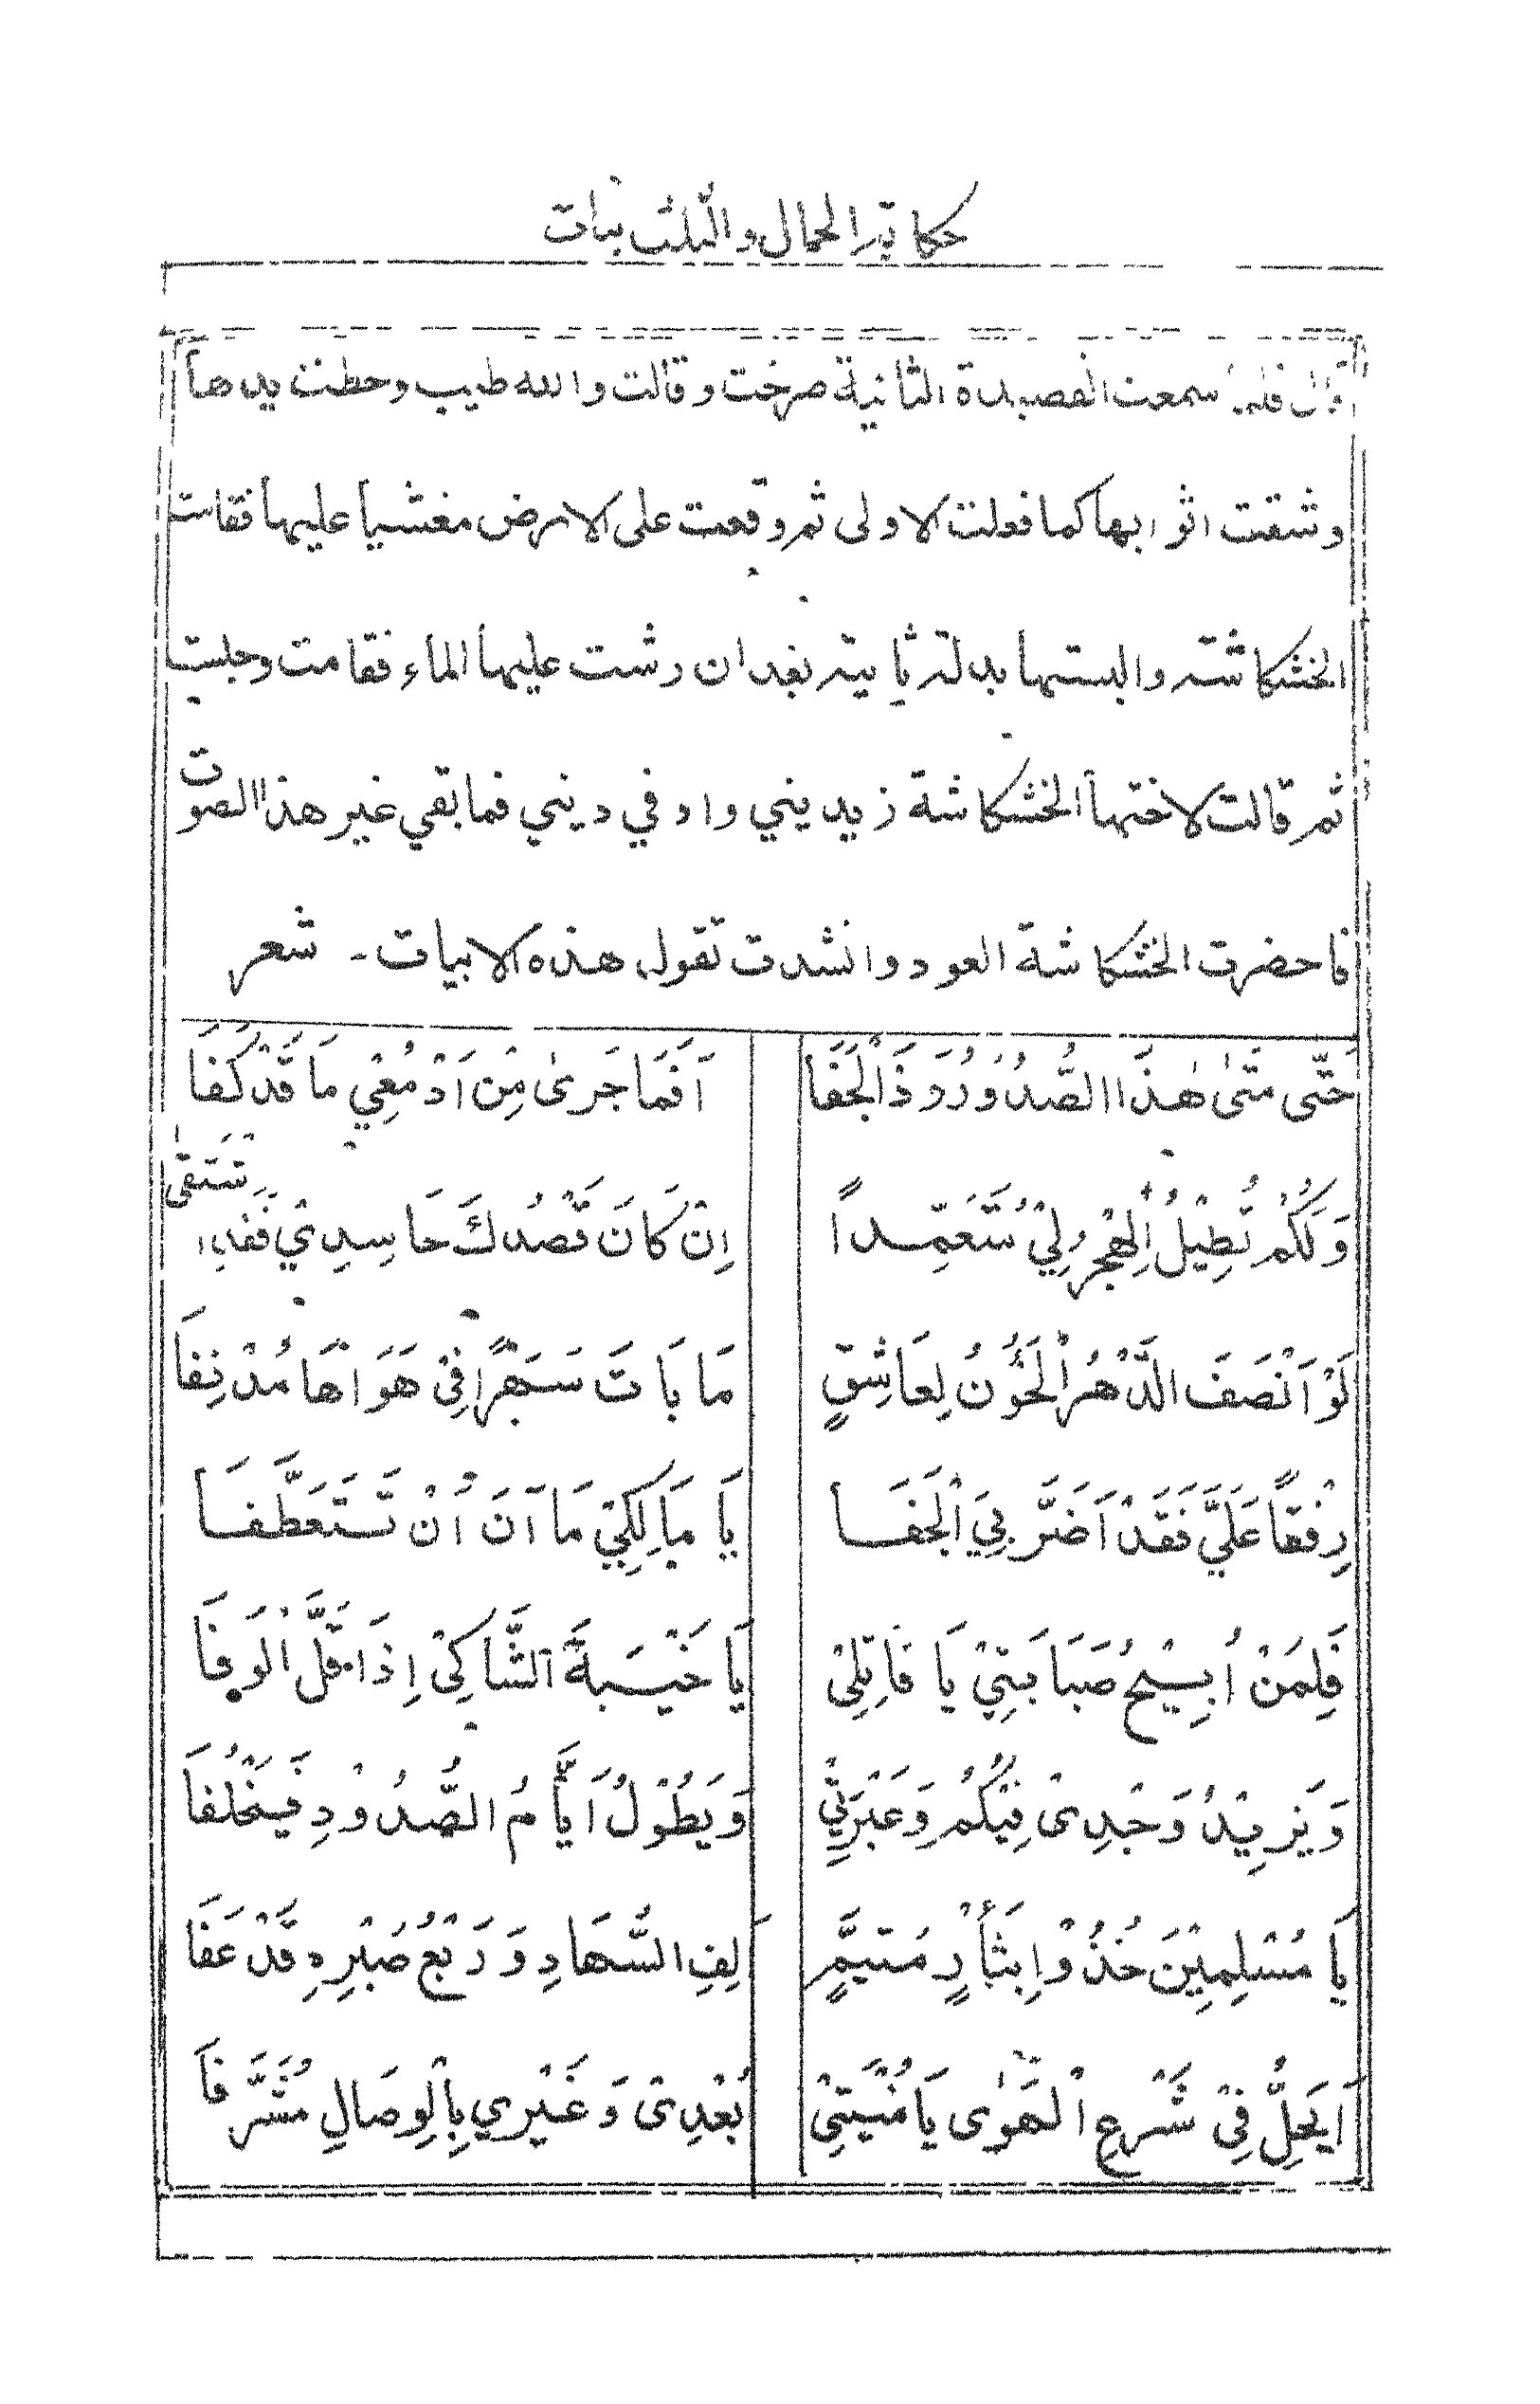 حكاية الحمال والثلث بنات
قال فلما سمعت القصيدة الثانية صرخت وقالت والله طيب وحطت يدها
وشقت اثوابها كما فعلت الاولى ثم وقعت على الارض مغشيا عليها فقامت
الخشكاشته والبستها بدلته ثانيته بعد ان رشت عليها الماء فقامت وجلست
ثم قالت لاختها الخشكاشة زيديني واوفي ديني فما بقي غير هذا الصوت
فاحضرت الخشكاشة العود وانشدت تقول هذه الابيات - شعر
حَتّى مَتىٰ هٰذَا الصُّدُوْرُ وَذَ الْجَفَا آفَمَا جَرىٰ مِنْ اَدْمُعِيْ مَا قَدْ كَفَا
وَلَكُمْ تُطِيْلُ الْهِجْرِ لِيْ مُتَعَمِّداً اِنْ كَانَ قَصْدُكَ حَاسِدِيْ فَقَدِ اشتقىٰ
لَوْ اَنْصَفَ الدَّهْرُ الْخَؤُنُ لِعَاشِقٍ مَا بَاتَ سَهَراً فِيْ هَوَاهَا مُدْنِفَا
رِفْقاً عَلَيَّ فَقَدْ اَضَرَّ بِيَ الْجَفَا يَا مَالِكِيْ مَا آنَ اَنْ تَتَعَطَّفَا
فَلِمَنْ اُبِيْحُ صَبَابَتِيْ يَا قَاتِلِيْ يَا خَيْبَةَ الشَّاكِيْ اِذَا قَلَّ الْوَفَا
وَيَزِيْدُ وَجْدِىْ فِيْكُمْ وَعَبْرَتِيْ وَيَطُوْلُ اَيَّامُ الصُّدُوْدِ فَيَخْلُفَا
يَا مُسْلِمِيْنَ خُذُوْا بِثَأْرِ مُتَيَّمٍ اَلِفِ السُّهَادِ وَرَبْعُ صَبْرِهِ قَدْ عَفَا
اَيَحِلُّ فِيْ شَرْعِ الْهَوٰى يَا مُنْيَتِيْ بُعْدِىْ وَغَيْرِي بِالْوِصَالِ مُشَرَّفَا